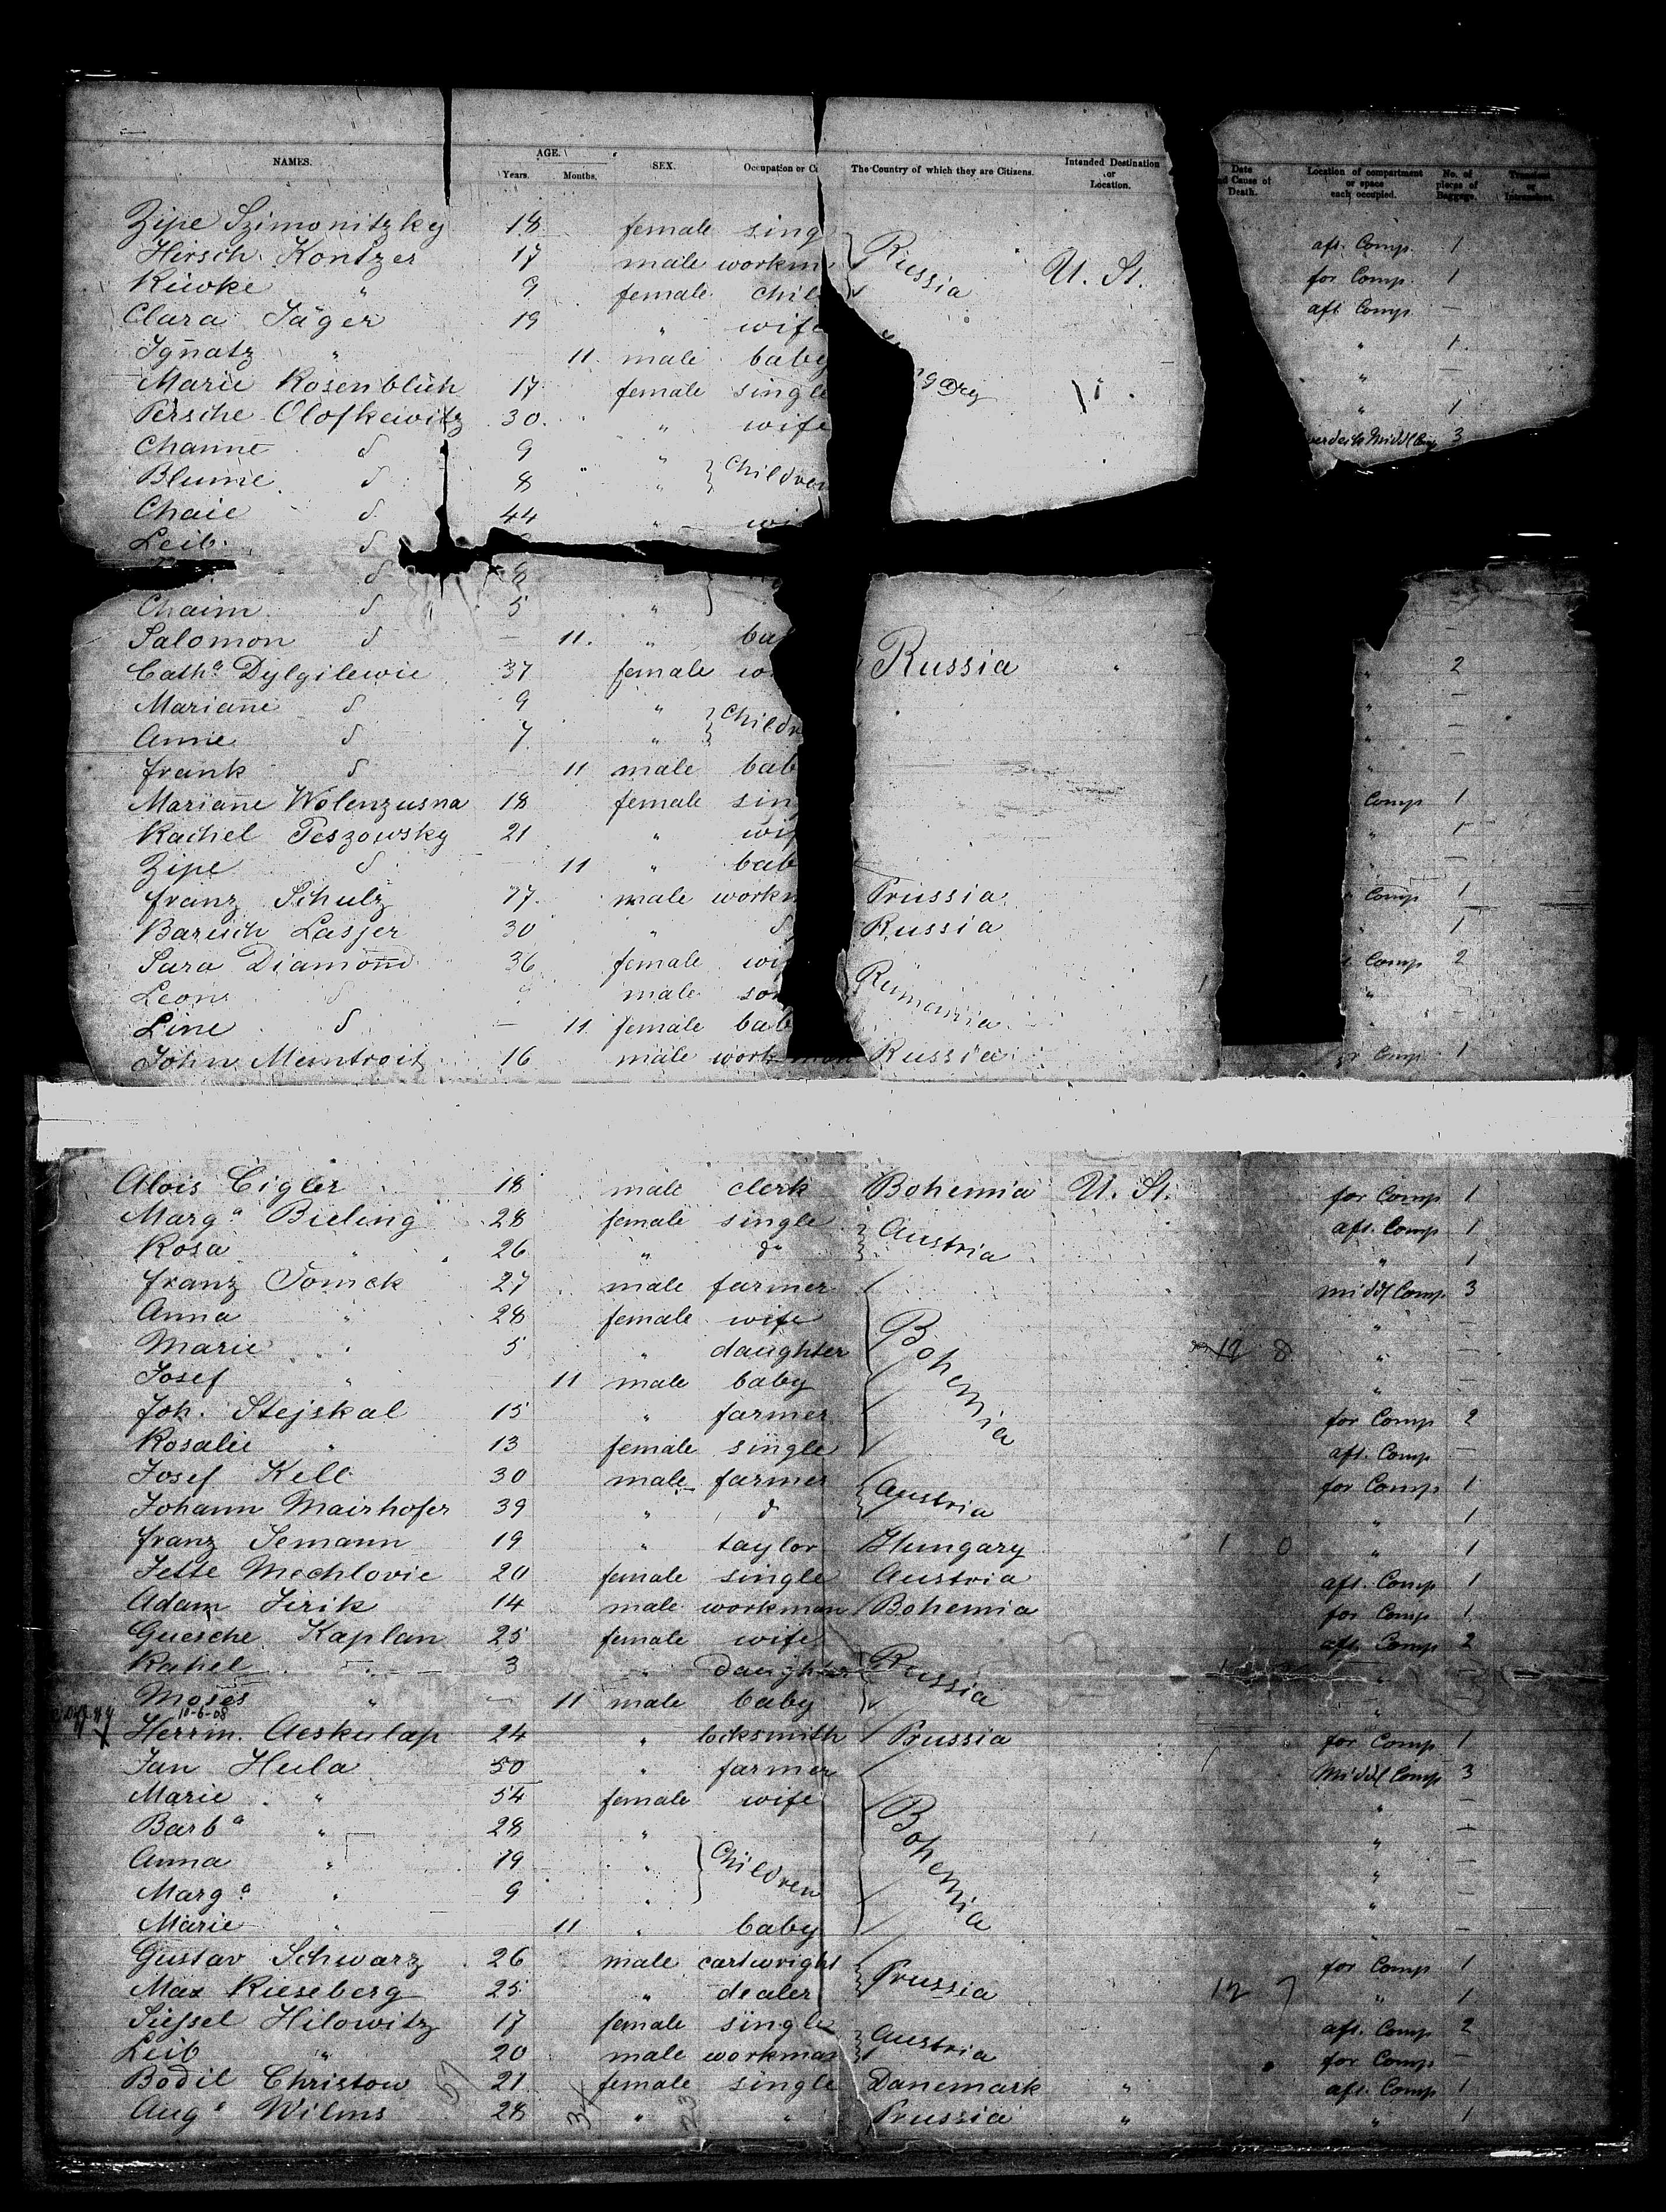 NAMES. AGE. Years. Months. SEX. Occupation or The Country of which they are Citizens. Intended Destination or Location. Date Cause of Death. Location of compartment or space each occupied. No. of pieces of Baggage. Transient or
Zipe Szimonitzky 18 female sing aft. Comp. 1
Hirsch Kontzer 17 male workm Russia U. St. for Comp. 1
Riwke " 9 female chil aft Comp. —
Clara Jäger 19 " wife " 1
Ignatz " — 11 male baby " —
Marie Rosenblüh 17 female single " 1
Persche Olofkewitz 30 " wife 3
Channe d 9 " Children
Blume d 8 "
Chaie d 44 " wi
Leib d
d 8 "
Chaim d 5 "
Salomon d — 11 " ba
Cath.a Dylgilewic 37 female Russia " " 2
Marianne d 9 " Childre " —
Anne d 7 " " —
Frank d 11 male bab " —
Marianne Wolenzusna 18 female sin Comp 1
Rachel Peszowsky 21 " wif " 1
Zipe d — 11 " bab —
Franz Schulz 17 male workm Prussia Comp 1
Barisch Lasjer 30 " d Russia 1
Sara Diamond 36 female wi Rumania Comp 2
Leon d male so "
Line d — 11 female bab
John Mamtroit 16 male workman Russia Comp 1
Alois Cigler 18 male clerk Bohemia U. St. for Comp 1
Marg.a Bieling 28 female single Austria aft. Comp 1
Rosa " 26 " do " 1
Franz Tomek 27 male farmer Bohemia middl Comp 3
Anna " 28 female wife " —
Marie " 5 " daughter 12 8 " —
Josef " 11 male baby " —
Joh. Stejskal 15 " farmer for Comp 2
Rosalie " 13 female single aft. Comp —
Josef Kell 30 male farmer Austria for Comp 1
Johann Mairhofer 39 " d " 1
Franz Semann 19 " taylor Hungary 1 0 " 1
Jette Mechlovic 20 female single Austria aft. Comp 1
Adam Jirik 14 male workman Bohemia for Comp 1
Guesche Kaplan 25 female wife Russia aft. Comp 2
Rahel " 3 " daughter " —
Moses " — 11 male baby "
10-6-08
Herrm. Aeskulap 24 " locksmith Prussia for Comp 1
Jan Hula 50 " farmer Bohemia Middl Comp 3
Marie " 54 female wife " —
Barb.a " 28 " Children " —
Anna " 19 " " —
Marg.a " 9 " " —
Marie " 11 " baby " —
Gustav Schwarz 26 male cartwright Prussia for Comp 1
Max Rieseberg 25 " dealer 12 7 " 1
Siessel Hilowitz 17 female single Austria aft. Comp 2
Leib " 20 male workman for Comp —
Bodil Christow 21 female single Danemark " aft. Comp 1
Aug.a Wilms 28 " " Prussia " " 1